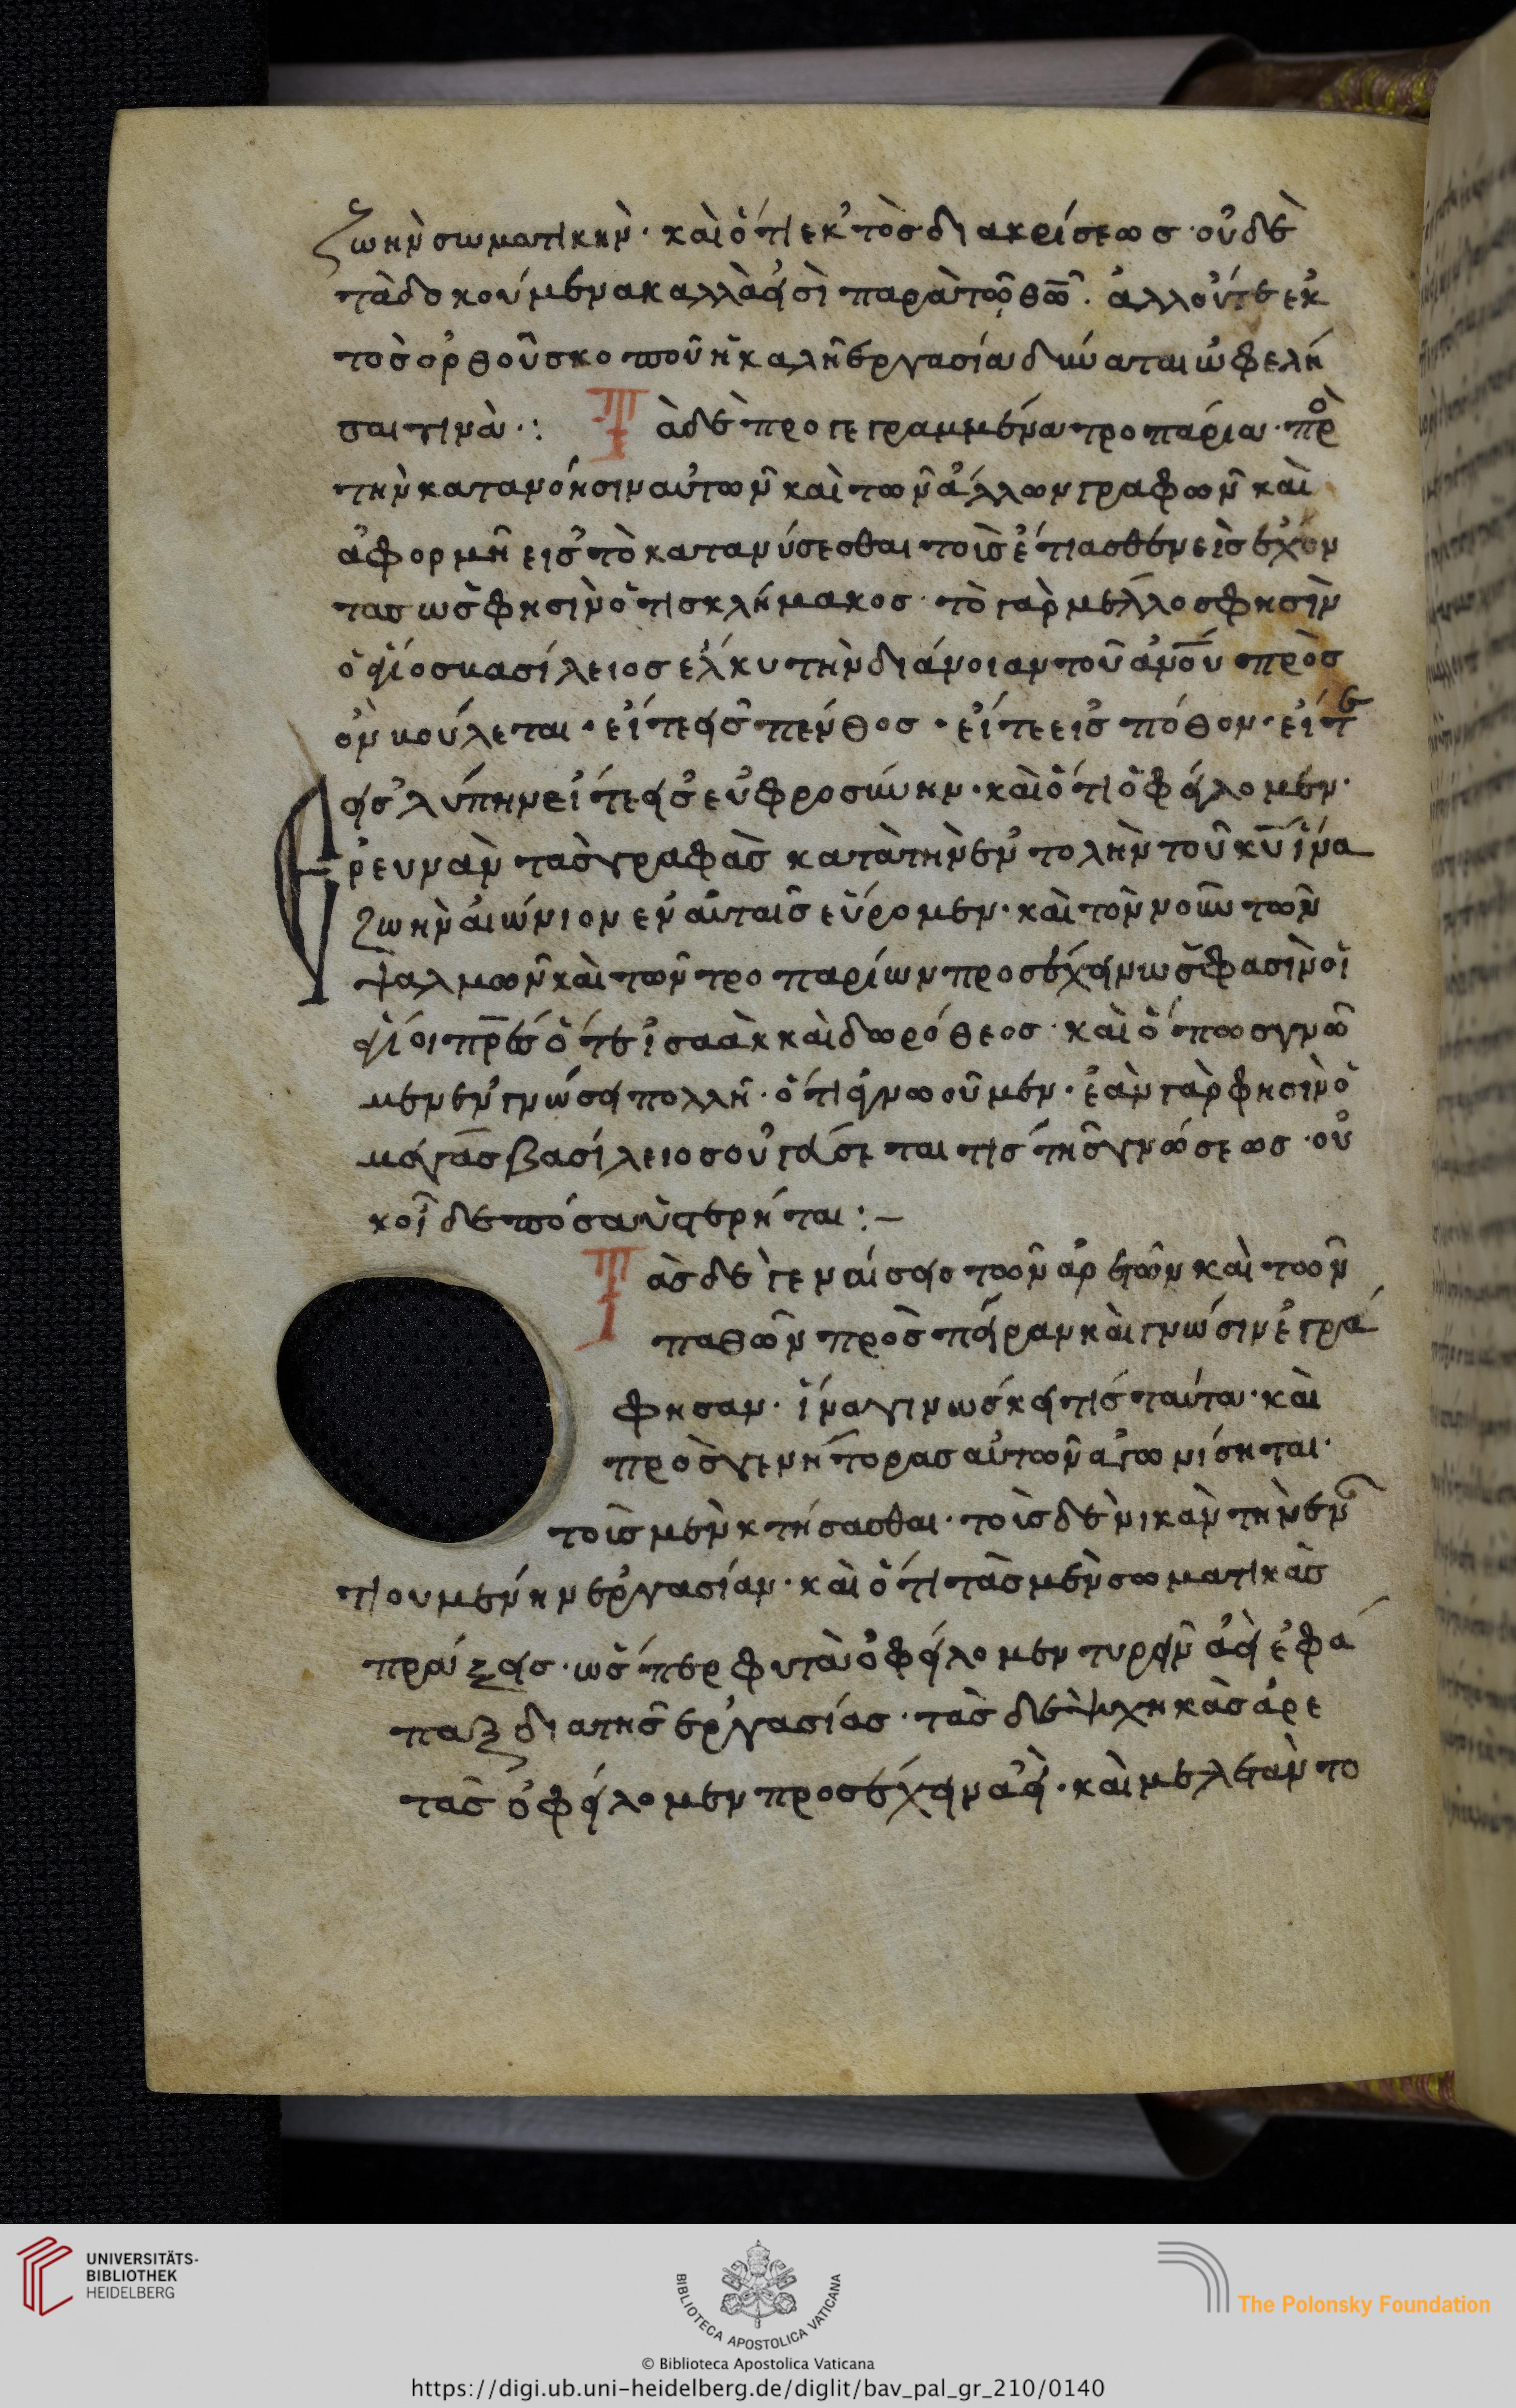 ζωὴν σωματικὴν· καὶ ὅτι ἐκτὸς διακρίσεως· οὐδὲ
τὰ δοκούμενα καλλὰ εἰσὶ παρὰ τῷ θῶ. ἀλλ οὔτε ἐκ
τὸς ὀρθοῦ σκοποῦ ἡ καλὴ ἐργασία δύναται ὠφελῆ
σαι τινὰ·: Τὰ δὲ προγεγραμμένα τροπάρια· πρὸ
τὴν κατανόησιν αὐτῶν καὶ τῶν ἄλλων γραφῶν καὶ
ἀφορμὴ εἰς τὸ κατανύσεσθαι τοῖς ἔτι ασθένεισ ἔχον
τας ὡς φησὶν ὁ τῆς κλήμακος· τὸ γὰρ μέλλος φησὶν
ὁ ἅγιος βασίλειος ἕλκυ τὴν διάνοιαν τοῦ ἀνου πρὸς
ὃν βούλεται· εἴτε εἰς πένθος· εἴτε εἰς πόθον· εἴτε
εἰς λύπην εἴτε εἰς εὐφροσύνην· καὶ ὅτι ὀφείλομεν·
Ἐρευνὰν τὰς γραφὰς κατὰ τὴν ἐντολὴν τοῦ κυ ἵνα
ζωὴν αἰώνιον ἐν αὐταῖς εὕρομεν· καὶ τὸν νοῦν τῶν
ψαλμῶν καὶ τῶν τροπαρίων προσέχειν ὡς φασὶν οἱ
ἅγιοι πρες ὅτε ἰσαὰκ καὶ δωρόθεος· καὶ ὅπως γνῶ
μεν ἐν γνώσει πολλῆ· ὅτι ἀγνωοῦμεν· ἐὰν γὰρ φησὶν ὁ
μέγας βασίλειος οὐ γεύσεται τις τῆς γνώσεως· οὐ
κ οἶδε πόσα ὑστερῆται:–
Τὰς δὲ γεννήσεις τῶν ἀρετῶν καὶ τῶν
παθῶν πρὸς πεῖραν καὶ γνῶσιν ἐγρά
φησαν· ἵνα γινωσκει τίς ταῦτα· καὶ
πρὸς γεννήτορας αὐτῶν ἀγωνίσηται·
τοῖς μὲν κτήσασθαι· τοῖς δὲ νικὰν τὴν ἐν
τιουμένην ἐργασίαν· καὶ ὅτι τὰς μὲν σωματικὰς
πράξεις· ὥσπερ φυτὰ ὀφείλομεν τυρεῖν ἀεὶ ἐφά
παξ διὰ τῆς ἐργασίας· τὰς δὲ ψυχηκὰς ἀρε
τὰς ὀφείλομεν προσέχειν ἀεὶ· καὶ μελετὰν το
UNIVERSITÄTS-
BIBLIOTHEK
HEIDELBERG
BIBLIOTECA APOSTOLICA VATICANA
The Polonsky Foundation
© Biblioteca Apostolica Vaticana
https://digi.ub.uni-heidelberg.de/diglit/bav_pal_gr_210/0140